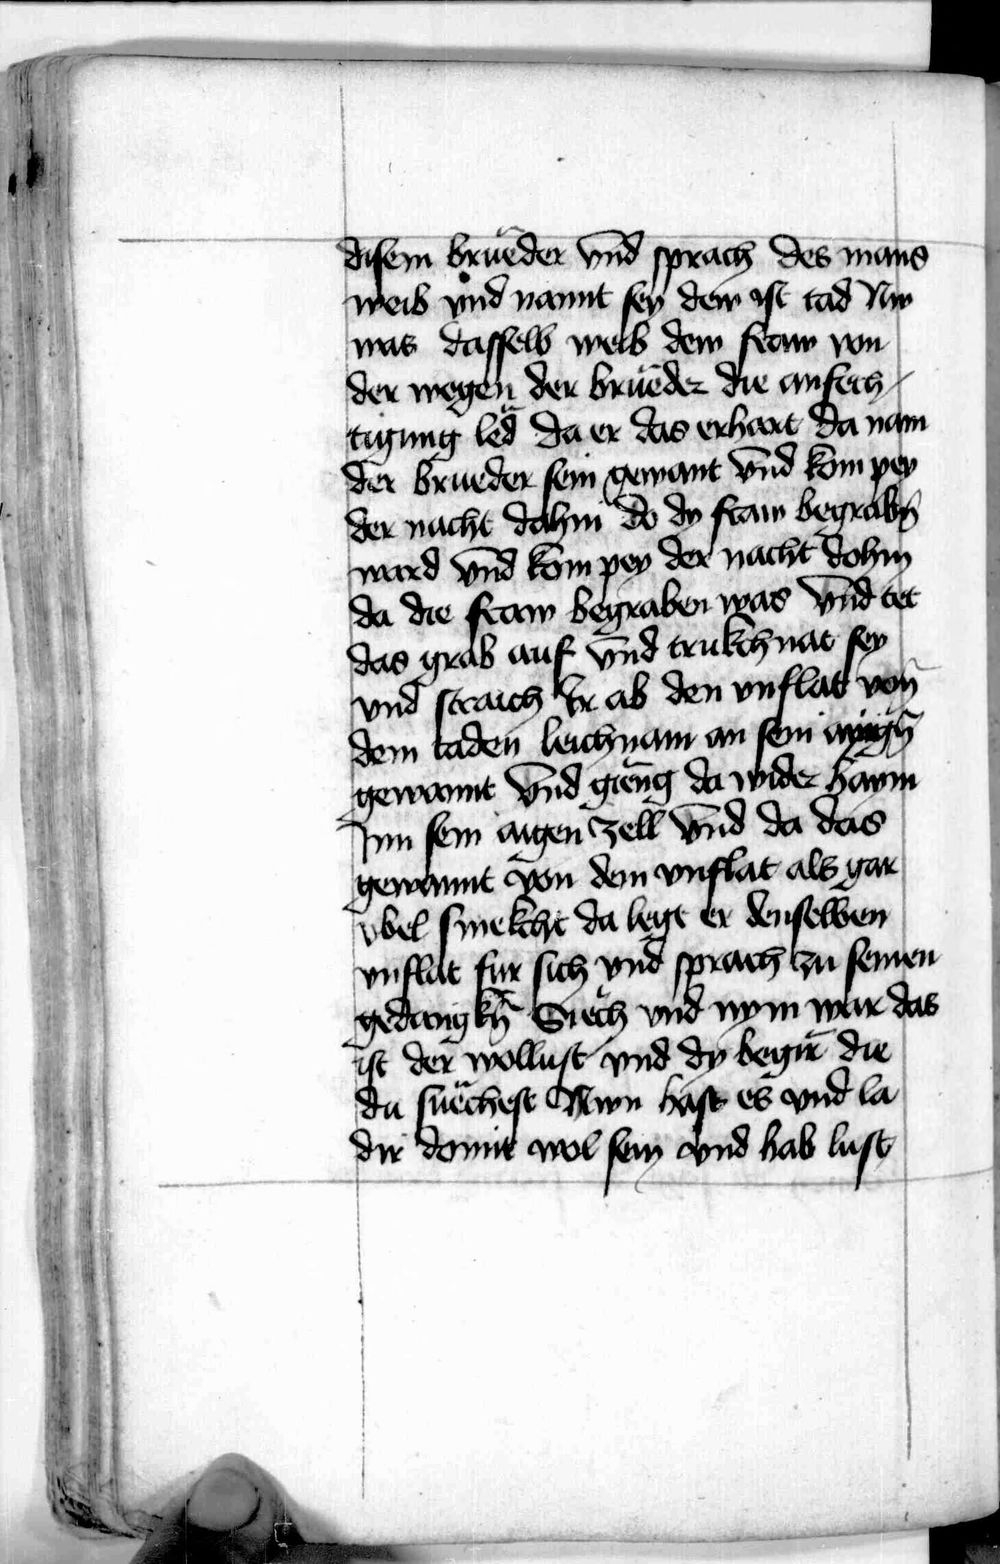 disem brueder vnd sprach des mans
weib vnd nannt sey dew ist tad Nw
was dasselb weib dew fraw von
der wegen der brueder die anfech
tigung led da er das erhort da nam
der brueder sein gewant vnd kom pey
der nacht dahin do dy fraw begrabn̄
ward vnd kom pey der nacht dohin
da die fraw begraben was vnd tet
das grab auf vnd trukchnat sey
vnd straich Ir ab den vnflat von
dem taden leichnam an sein aygn̄
gewannt vnd gieng da wider haym
Inn sein aigen zell vnd da das
gewannt von dem vnflat als gar
vbel smekcht da legt er denselben
vnflat fur sich vnd sprach zu seinen
gedangkn̄ Siech vnd nym war das
ist der wollust vnd dy begir die
du suechest Nwn hast es vnd la
dir domit wol sein vnd hab lust